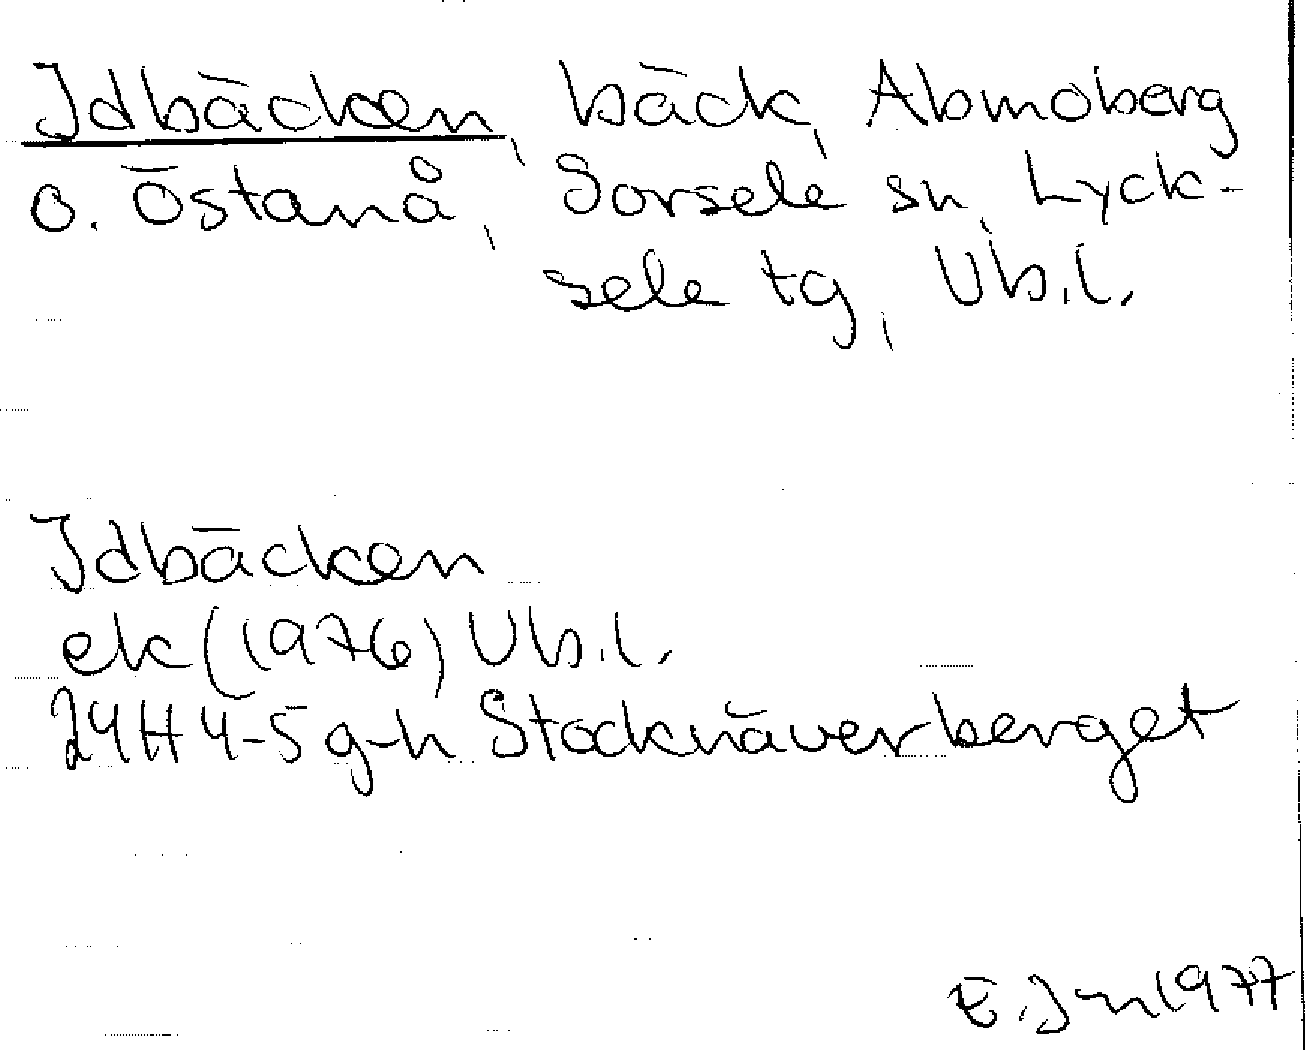 Idbäcken, bäck, Abmoberg
o. Östanå, Sorsele sn, Lyck-
sele tg, Vb.l.
Idbäcken
ek (1976) Vb.l.
24H 4-5 g-h Stocknäverberget
E. Jn 1977